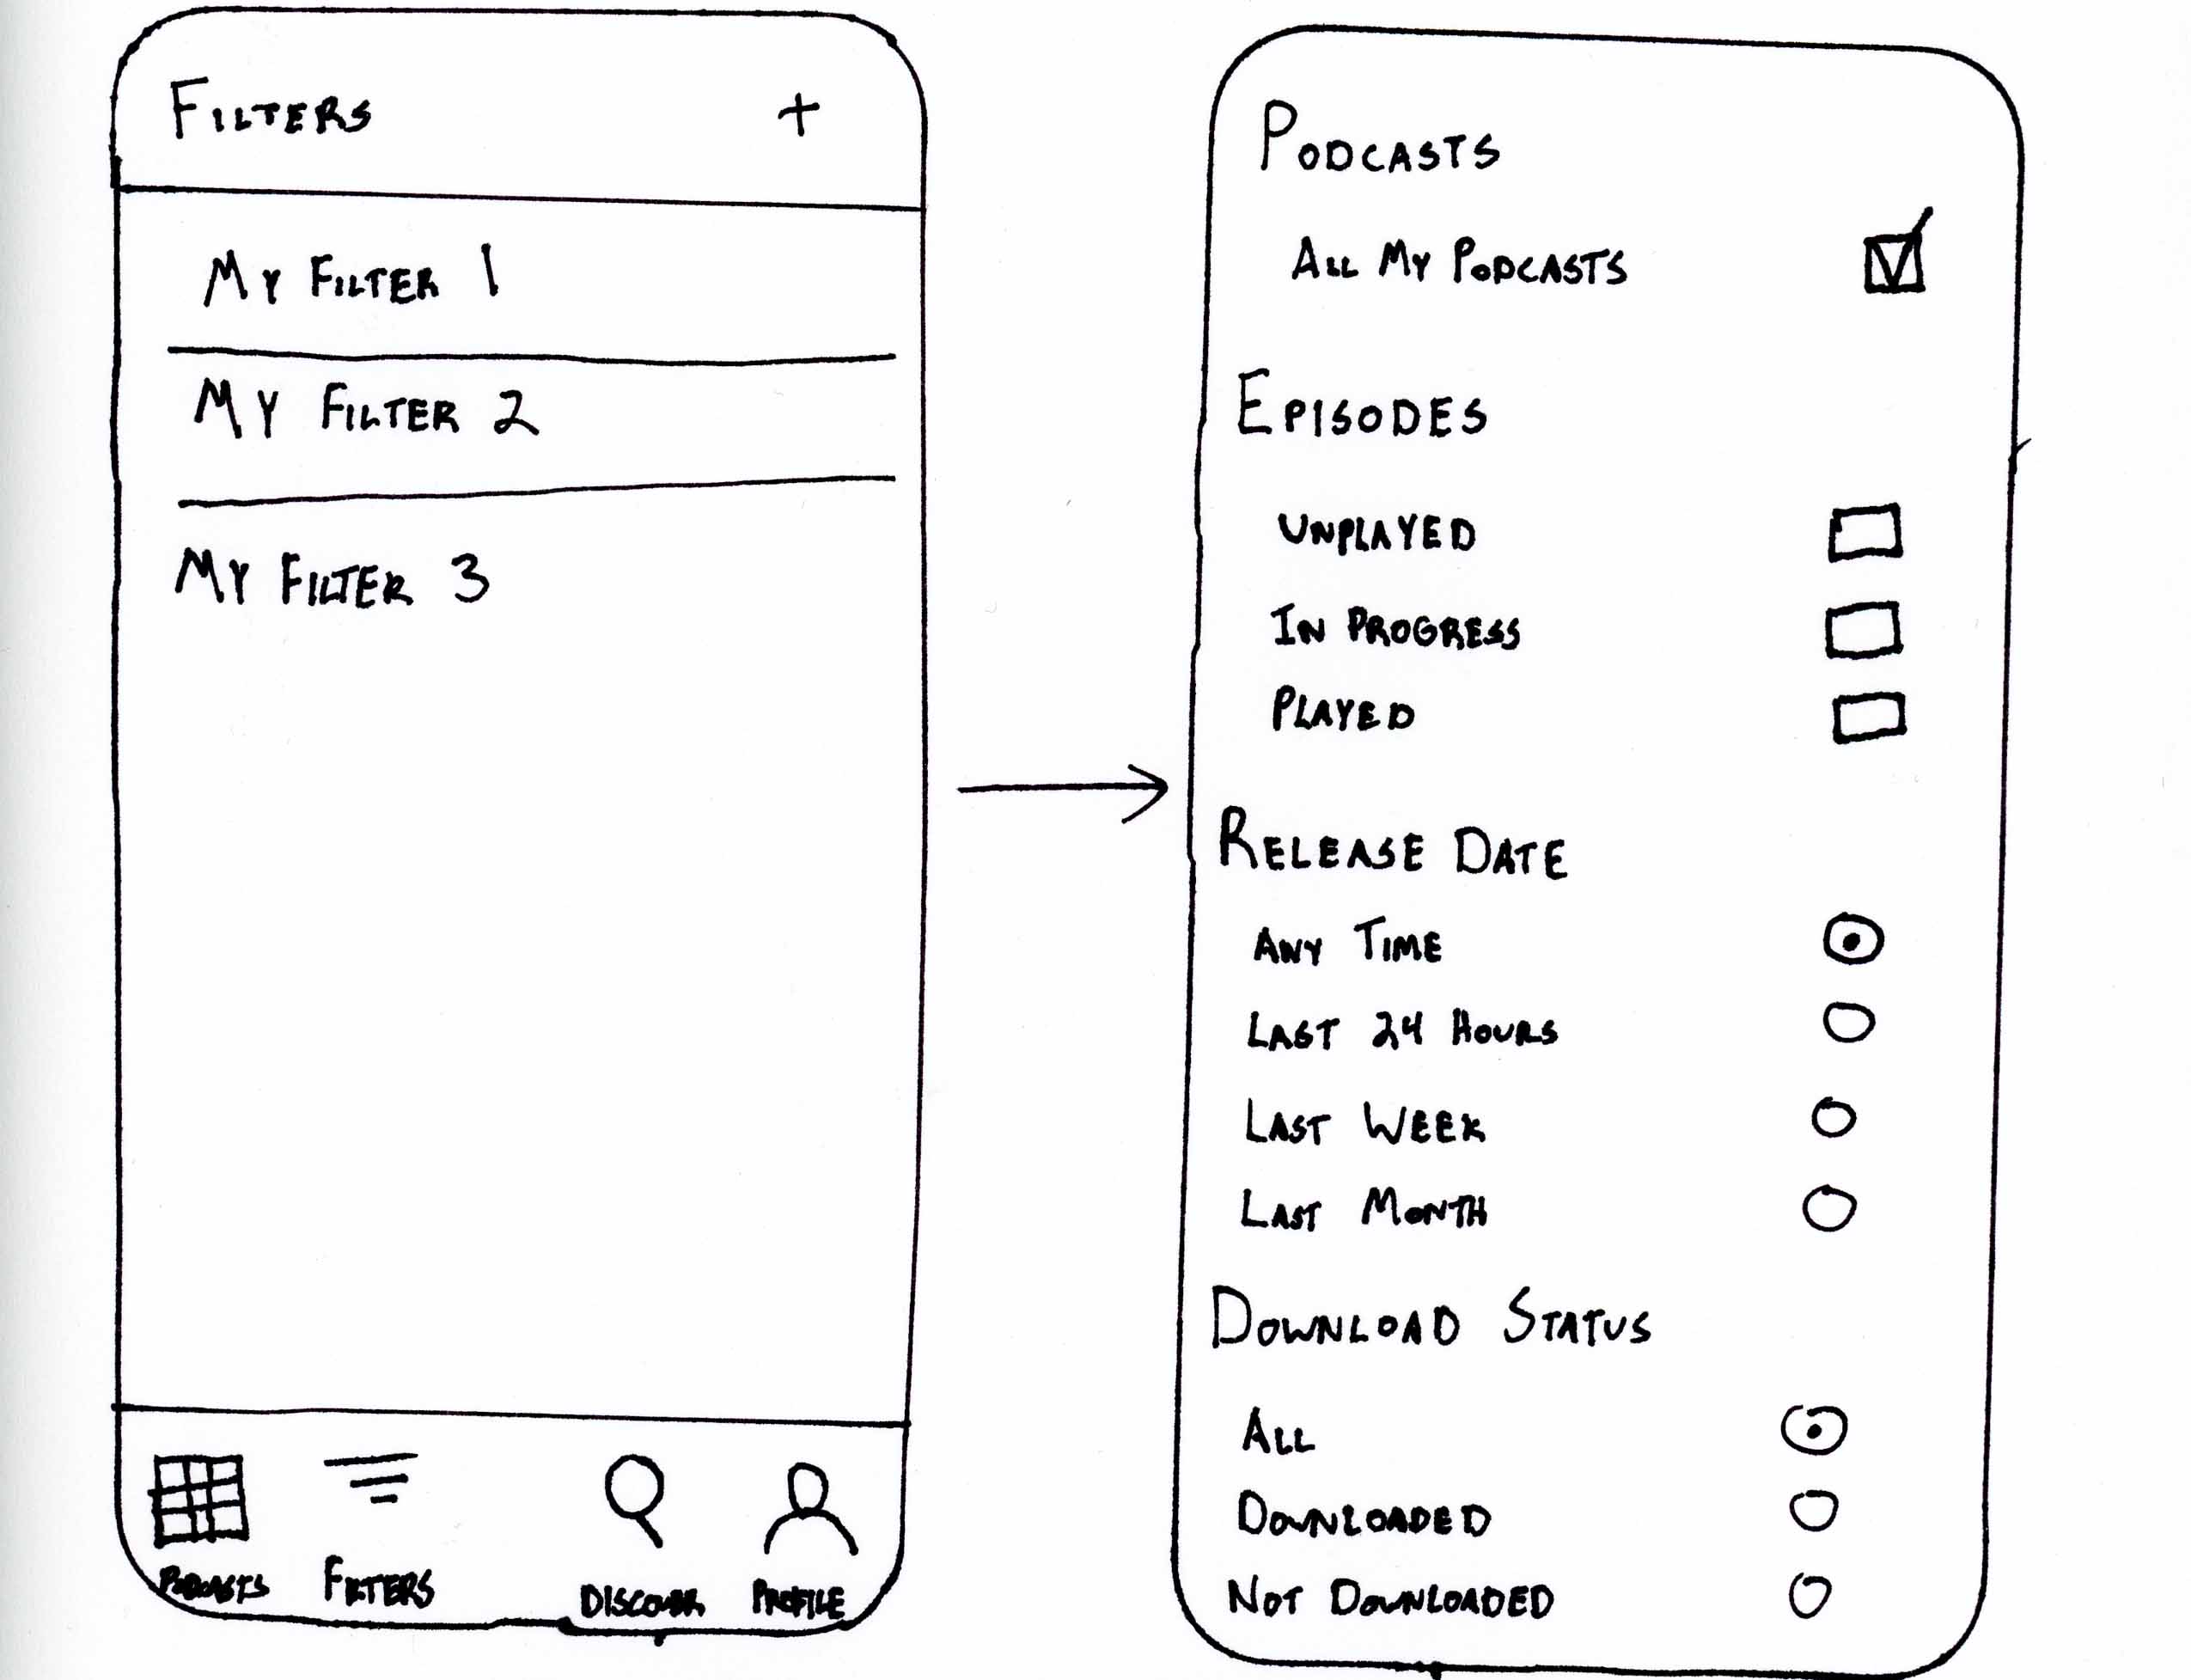 FILTERS +
MY FILTER 1
MY FILTER 2
MY FILTER 3
PODCASTS FILTERS DISCOVER PROFILE
PODCASTS
ALL MY PODCASTS
EPISODES
UNPLAYED
IN PROGRESS
PLAYED
RELEASE DATE
ANY TIME
LAST 24 HOURS
LAST WEEK
LAST MONTH
DOWNLOAD STATUS
ALL
DOWNLOADED
NOT DOWNLOADED